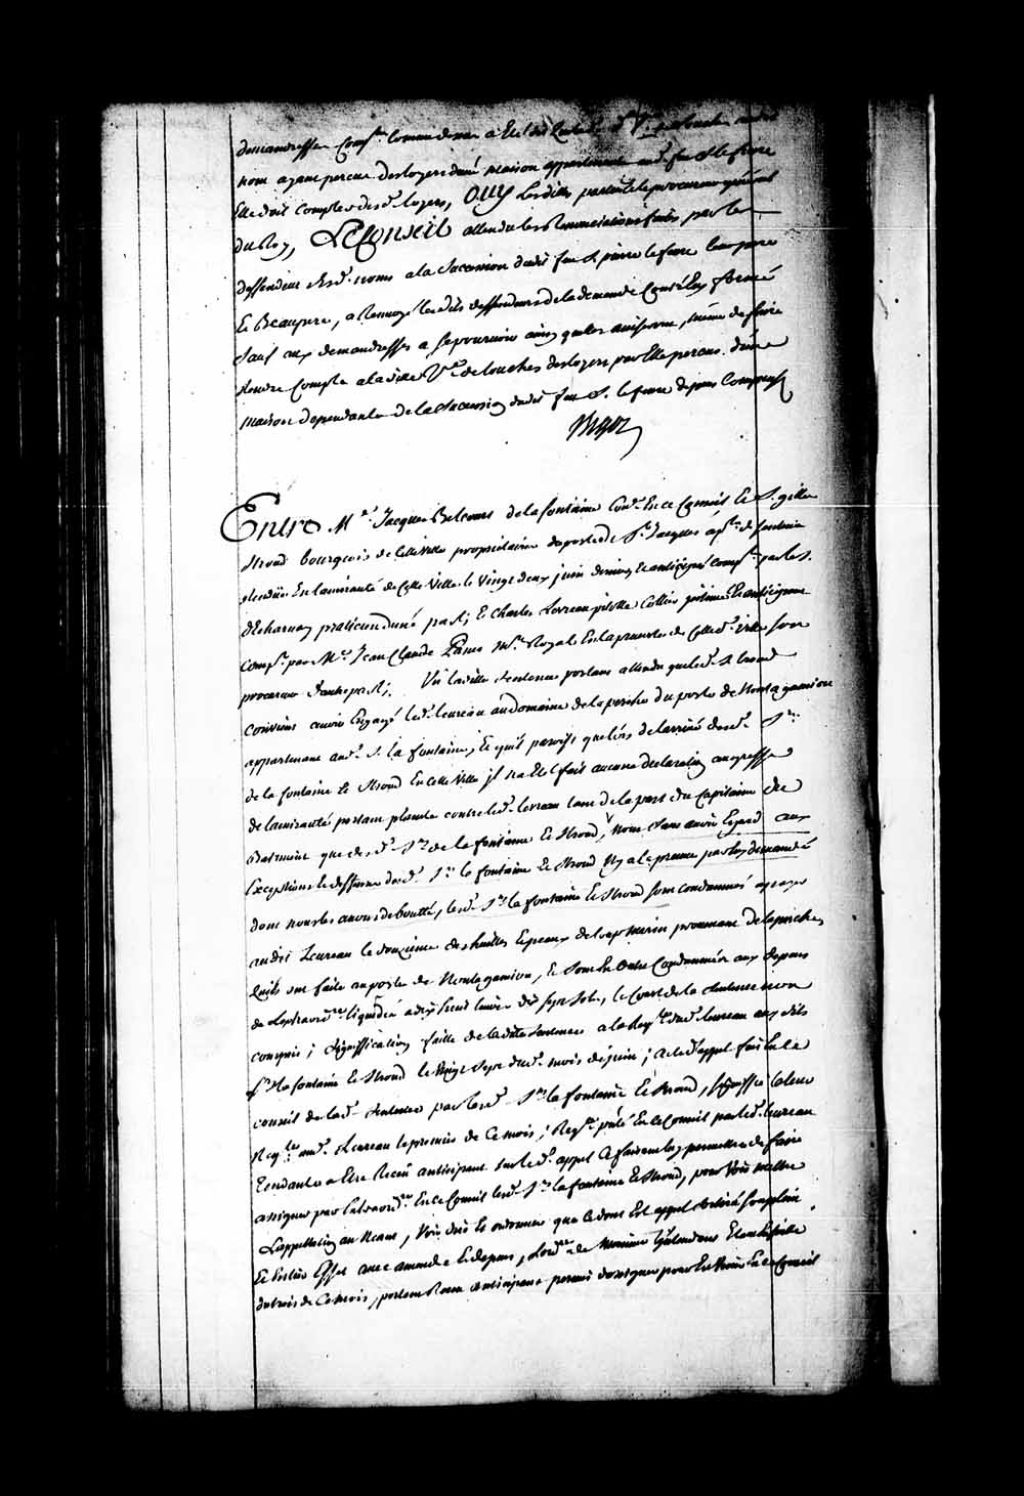 nom ayant percu des loyers d'une maison appartenante aud. feu S. le febvre
Elle doit compte desd. loyers, OUY Lesdittes parties le procureur general
du Roy, LE Conseil attendu les Renonciations faites par les
deffendeurs esd. noms a la Succession dudit feu S. pierre lefevre leur pere
et Beaupere, a Renvoyé lesdits deffendeurs de la demande
sauf aux demandresses a se pourvoir ainsy quelles aviseront, même de faire
Rendre Compte a la ditte Ve. de louches des loyers par Elle percus d'une
maison dependante de la Succession dudit feu S. lefevre depens Compensés
Entre Me. Jacques Belcourt de la fontaine Coner. En ce Conseil Et S. gilles
Stroud bourgeois de Cette Ville proprietaire du poste de St. Jacques
rendue En lamirauté de Cette Ville le Vingt deux juin dernier et anticipé Compt. par le S.
praticien d'une part; Et Charles Lereau pilotte Cottier intimé Et anticipant
Compt. par Me. Jean Claude Panet Nore. Royal En la prevosté de Cetted. Ville son
procureur d'autre part; Vu laditte Sentence portant attendu que led. S. Stroud
convient avoir Engagé led. lereau au Domaine de la pesche du poste de Montagamiou
appartenant aud. S. la fontaine, Et quil paroist que lors de larrivé desd. Srs.
de la fontaine Et Stroud En Cette Ville il na Eté fait aucune declaration au greffe
de lamirauté portant plainte contre led. lereau tant de la part du Capitaine du
Batiment que desd. Srs. de la fontaine Et Stroud, Nous Sans avoir Egard aux
Exceptions et deffenses desd. Srs. la fontaine Et Stroud Ny a la preuve par Eux demandée
dont nous les avons deboutté, lesd. Srs. la fontaine Et Stroud sont condamnés a payer
audit Lereau le douzieme des huilles Et peaux de loup marin provenant de la pesche
quils ont faite au poste de Montagamiou, Et Sont En Outre Condamnés aux depens
de Lextraordre. liquidés a dix huit livres dix sept sols, le Cout de la Sentence non
compris; Signiffication faitte de laditte Sentence a la Reqte. dud. lereau aux dits
Srs. la fontaine Et Stroud le Vingt Sept dud. mois de juin; acte d'appel fait En ce
conseil de lad. Sentence par lesd. Srs. la fontaine Et Stroud, signiffié a leur
Reqte. aud. Lereau le premier de Ce mois; Reqte. pnté En ce Conseil par led. lereau
Tendante a Etre Receu anticipant sur led. appel Ce faisant luy permettre de faire
assigner par Extraordre. En ce Conseil lesd. Srs. la fontaine Et Stroud, pour Voir mettre
Lappellation au Neant, Voir dire Et ordonner que Ce dont Est appel Sortira Son plein
Et Entier Effet avec amende Et depens, Lordce. de
du trois de Ce mois, portant Receu anticipant permis d'assigner pour En Venir En ce Conseil